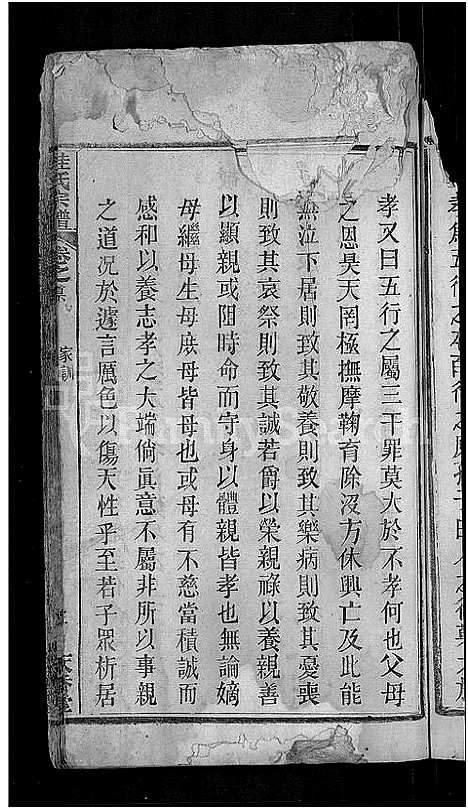 孝又曰五行之屬三千罪莫大於不孝何也父母
之恩昊天罔極撫摩鞠育除沒方休興亡及此能
無泣下居則致其敬養則致其樂病則致其憂喪
則致其哀祭則致其誠若爵以榮親祿以養親善
以顯親或阻時命而守身以體親皆孝也無論嫡
母繼母生母庶母皆母也或母有不慈當積誠而
感和以養志孝之大端倘真意不屬非所以事親
之道况於遽言厲色以傷天性乎至若子眾析居
氏宗譜
卷之
家訓